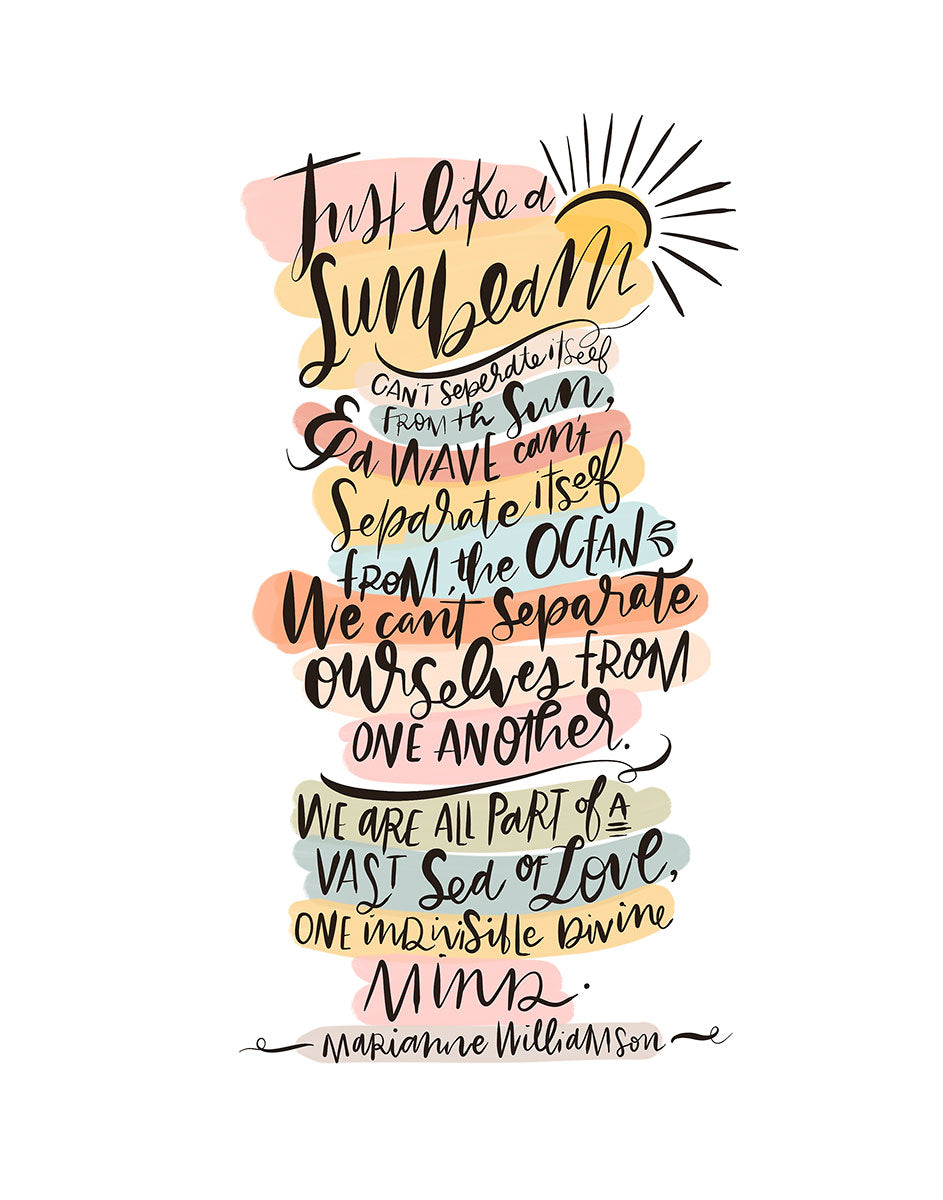 Just like a
Sunbeam
CAN'T Seperate itself
FROM th Sun,
& a WAVE can't
Separate itself
FROM the OCEAN
We can't Separate
OURSelves FROM
ONE ANOther.
WE ARE All PART of A
VAST Sea OF Love,
ONE iNDiViSiblE DiviNe
MiND.
MARiANNe WilliAMSon